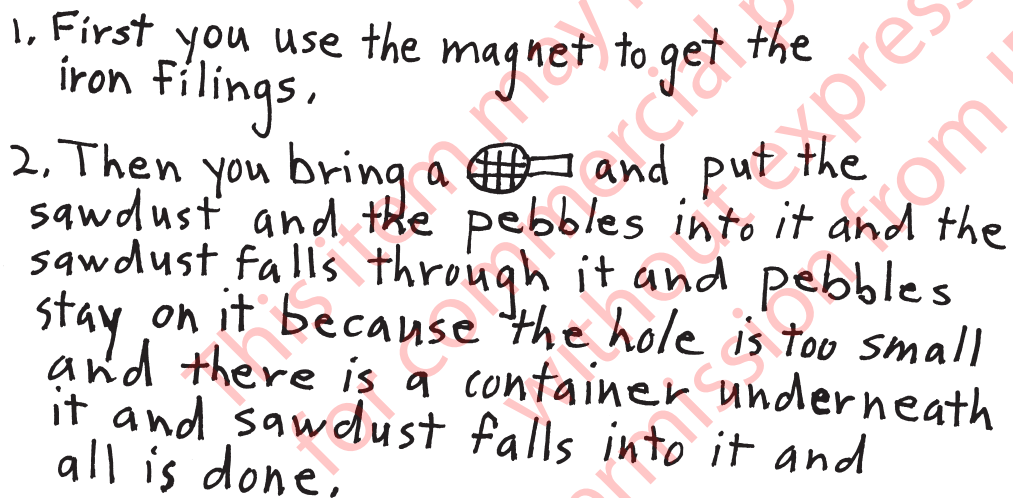 1. First you use the magnet to get the
iron filings.
2. Then you bring a and put the
sawdust and the pebbles into it and the
sawdust falls through it and pebbles
stay on it because the hole is too small
and there is a container underneath
it and sawdust falls into it and
all is done.
This item may
for commercial p
without express
rmission from